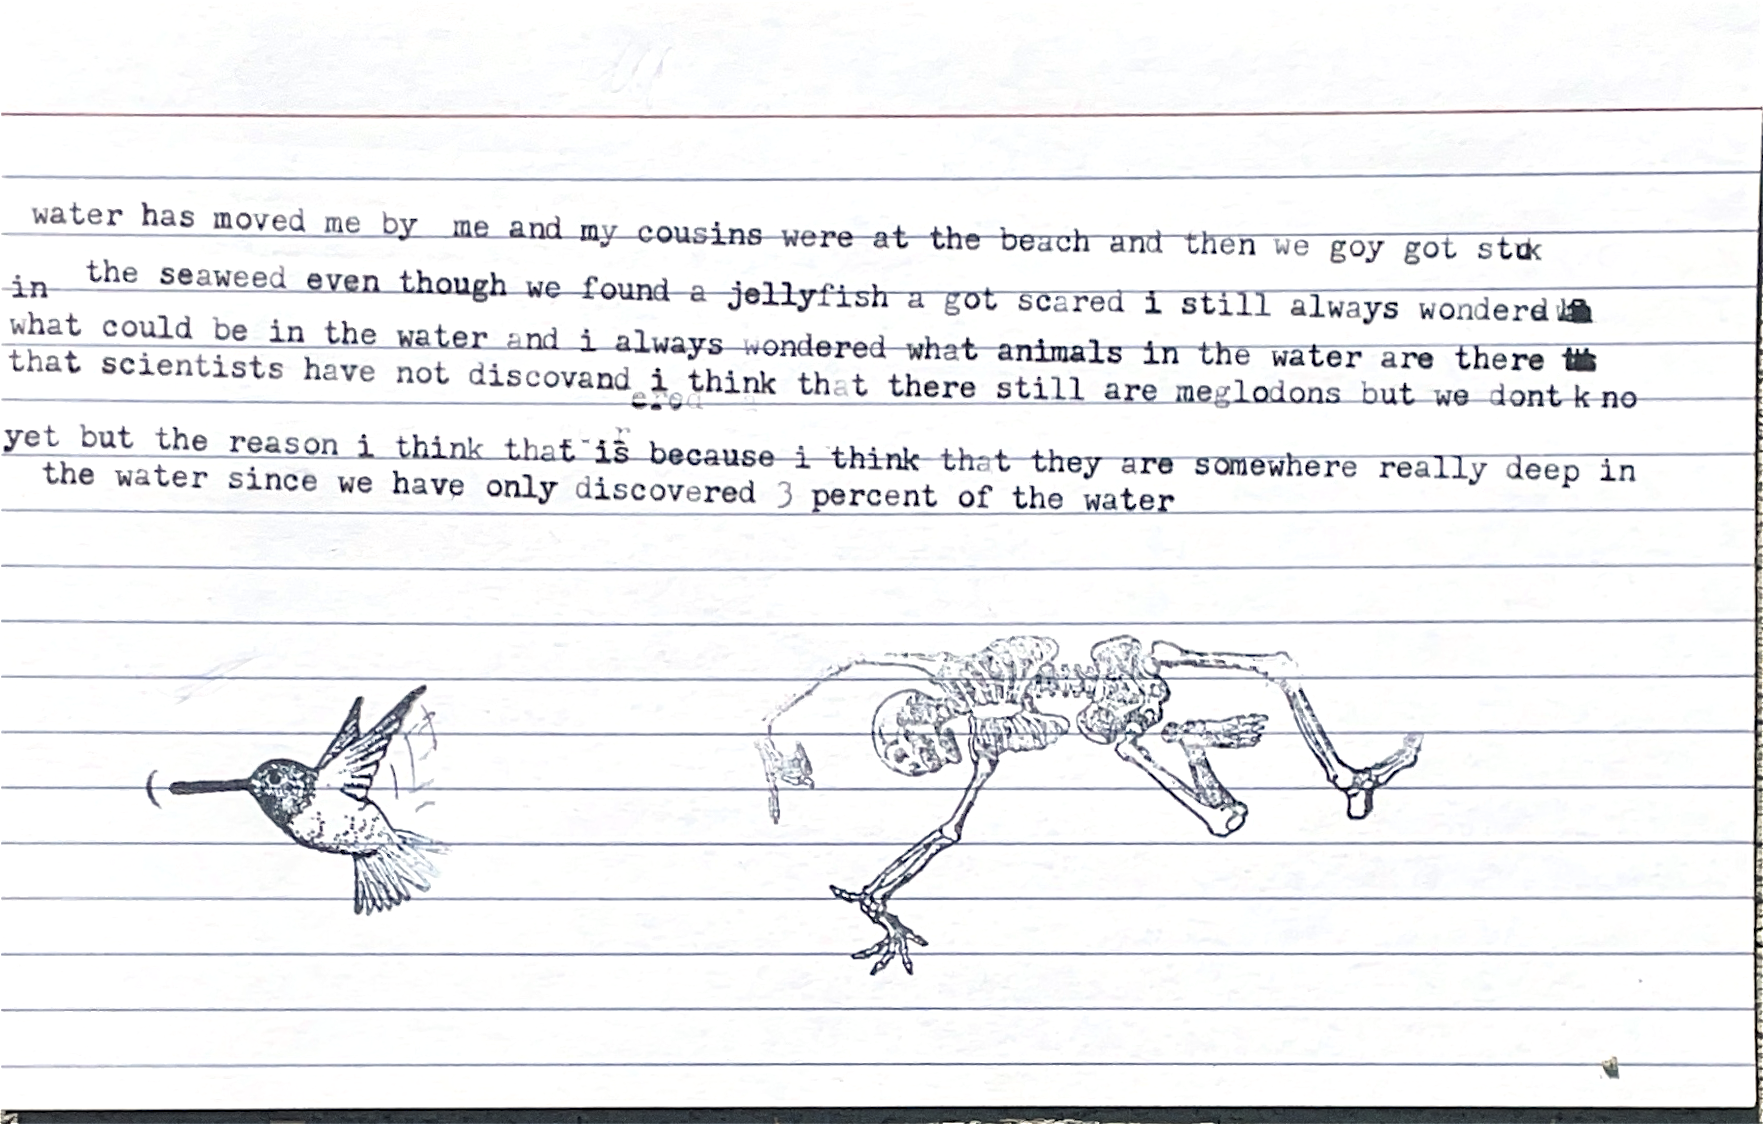 water has moved me by me and my cousins were at the beach and then we goy got stuk
in the seaweed even though we found a jellyfish a got scared i still always wonderd
what could be in the water and i always wondered what animals in the water are there
that scientists have not discovand i think that there still are meglodons but we dont k no
ered
yet but the reason i think that is because i think that they are somewhere really deep in
the water since we have only discovered 3 percent of the water